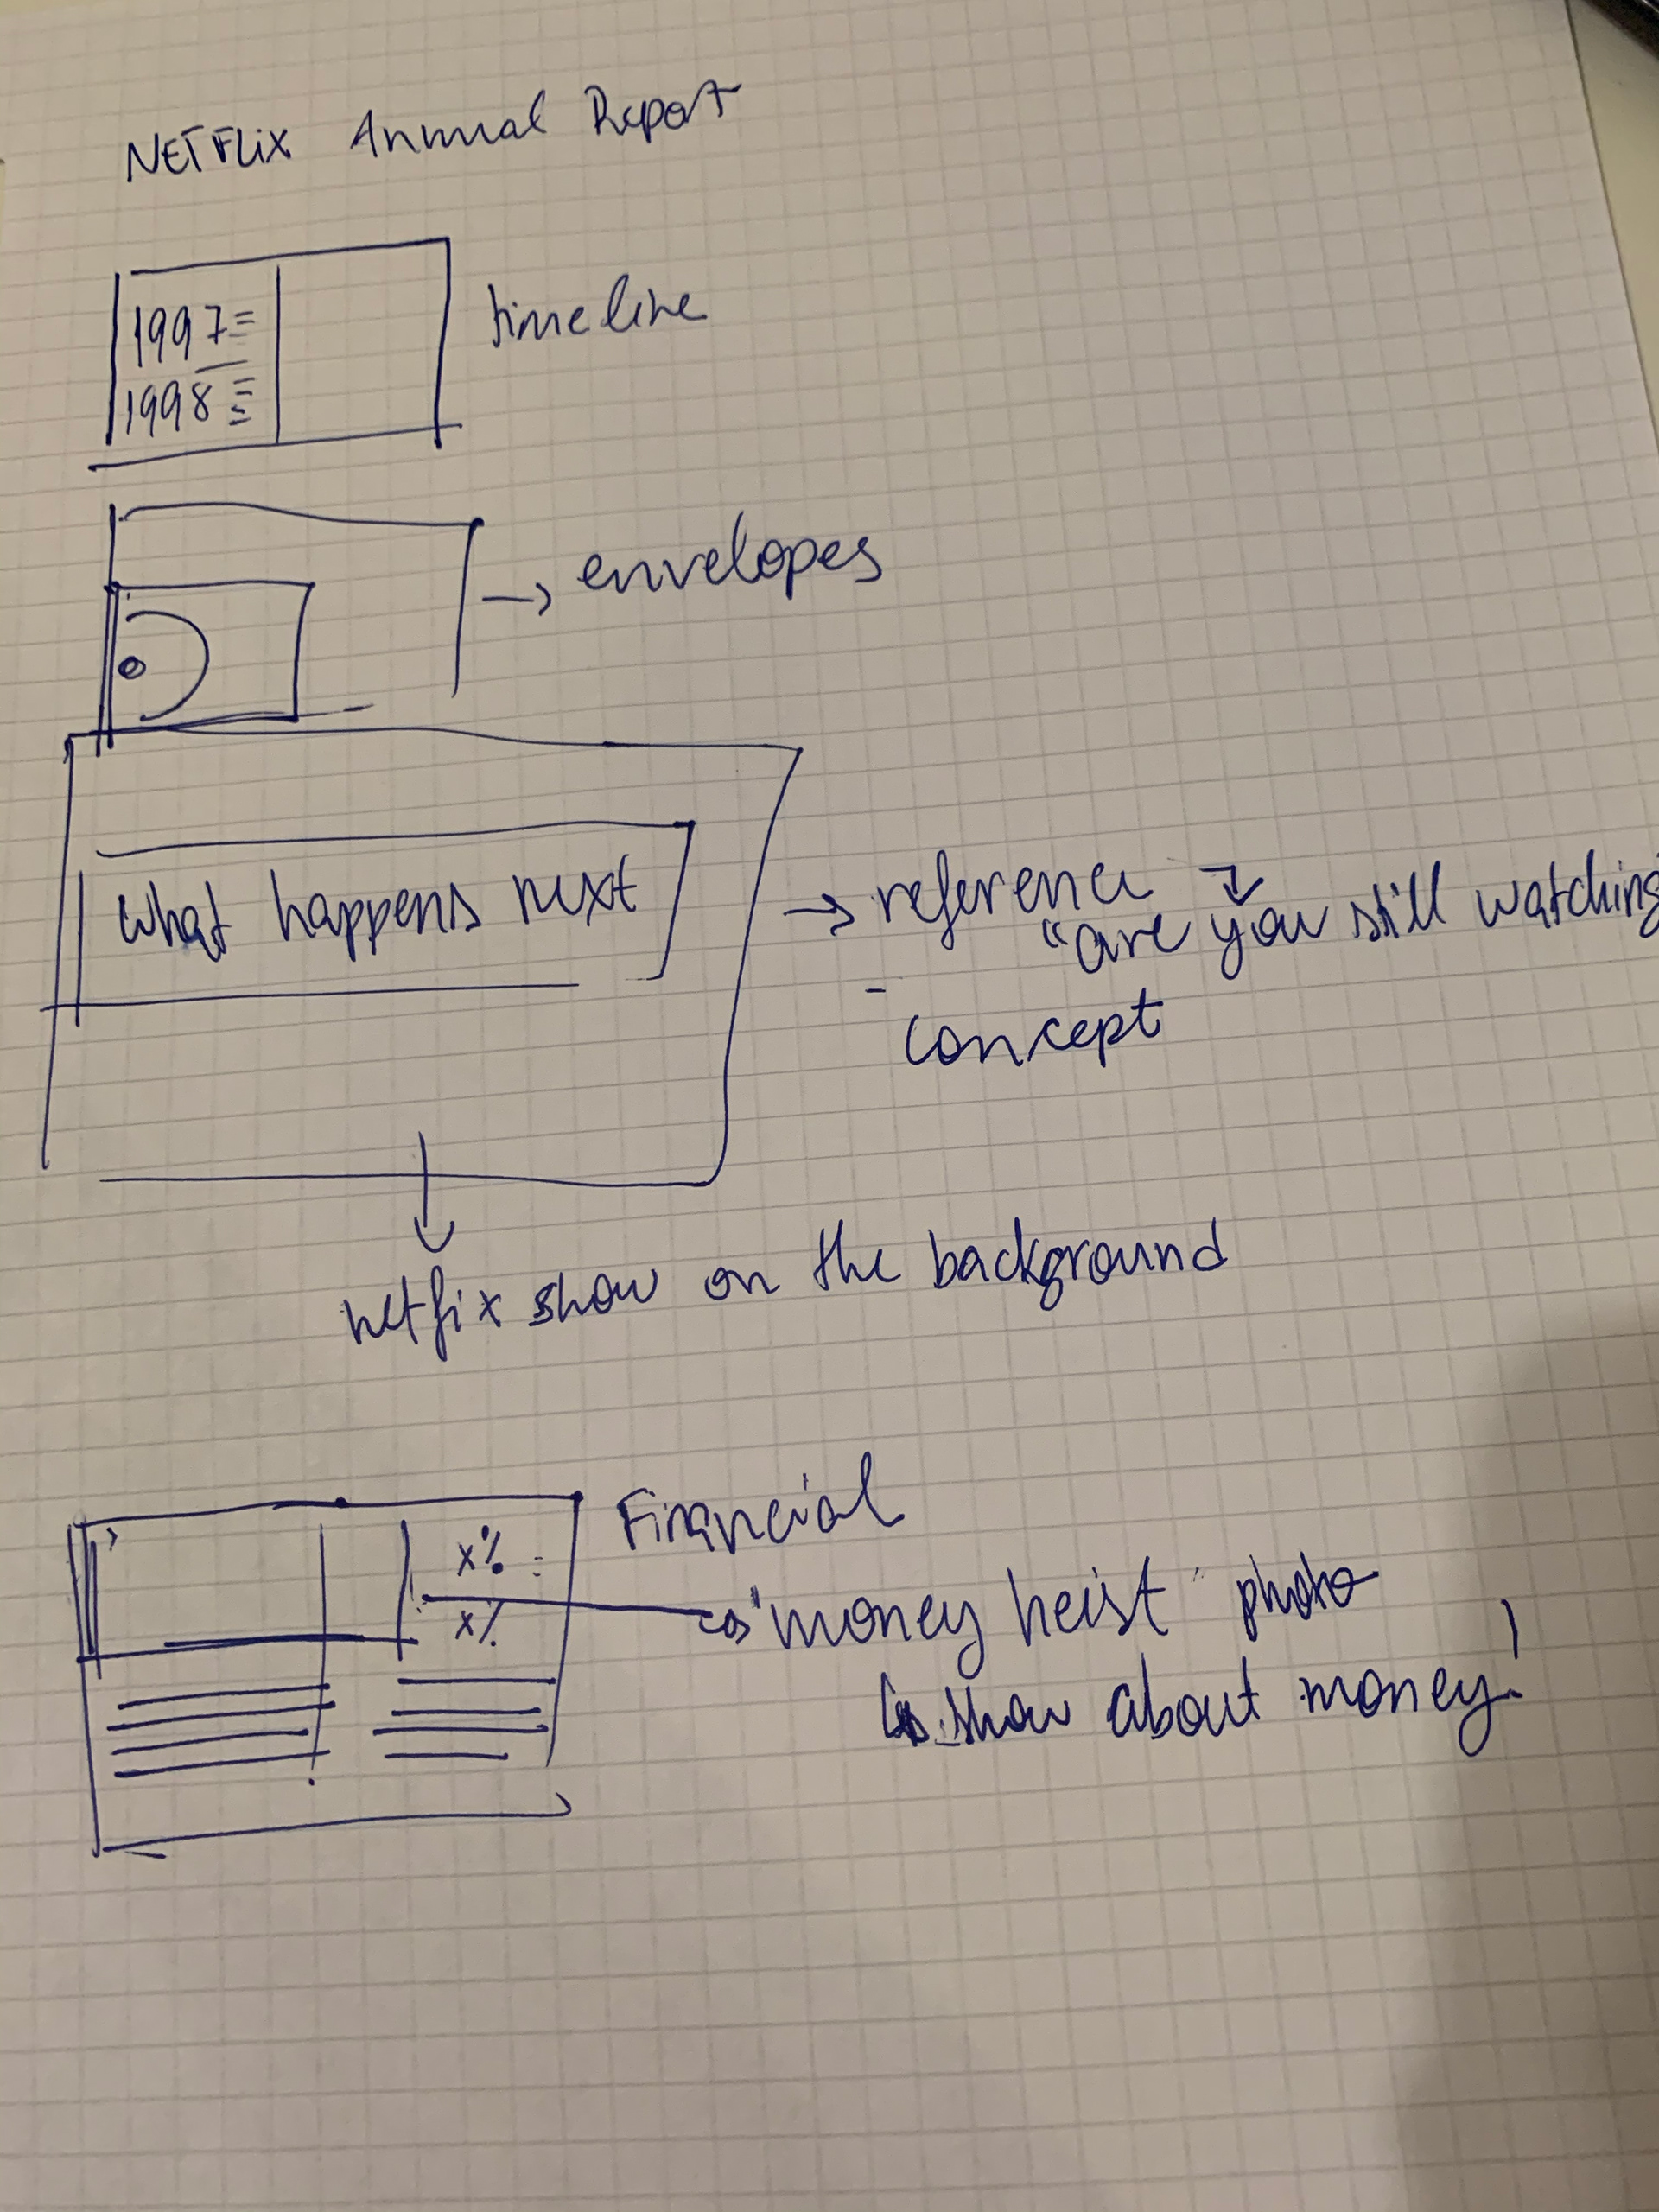 NETFLix Annual Report
1997
1998
timeline
→ envelopes
what happens next
→ reference
"are you still watching
- concept
netfix show on the background
Financial
x%
x%
"money heist" photo
show about money!